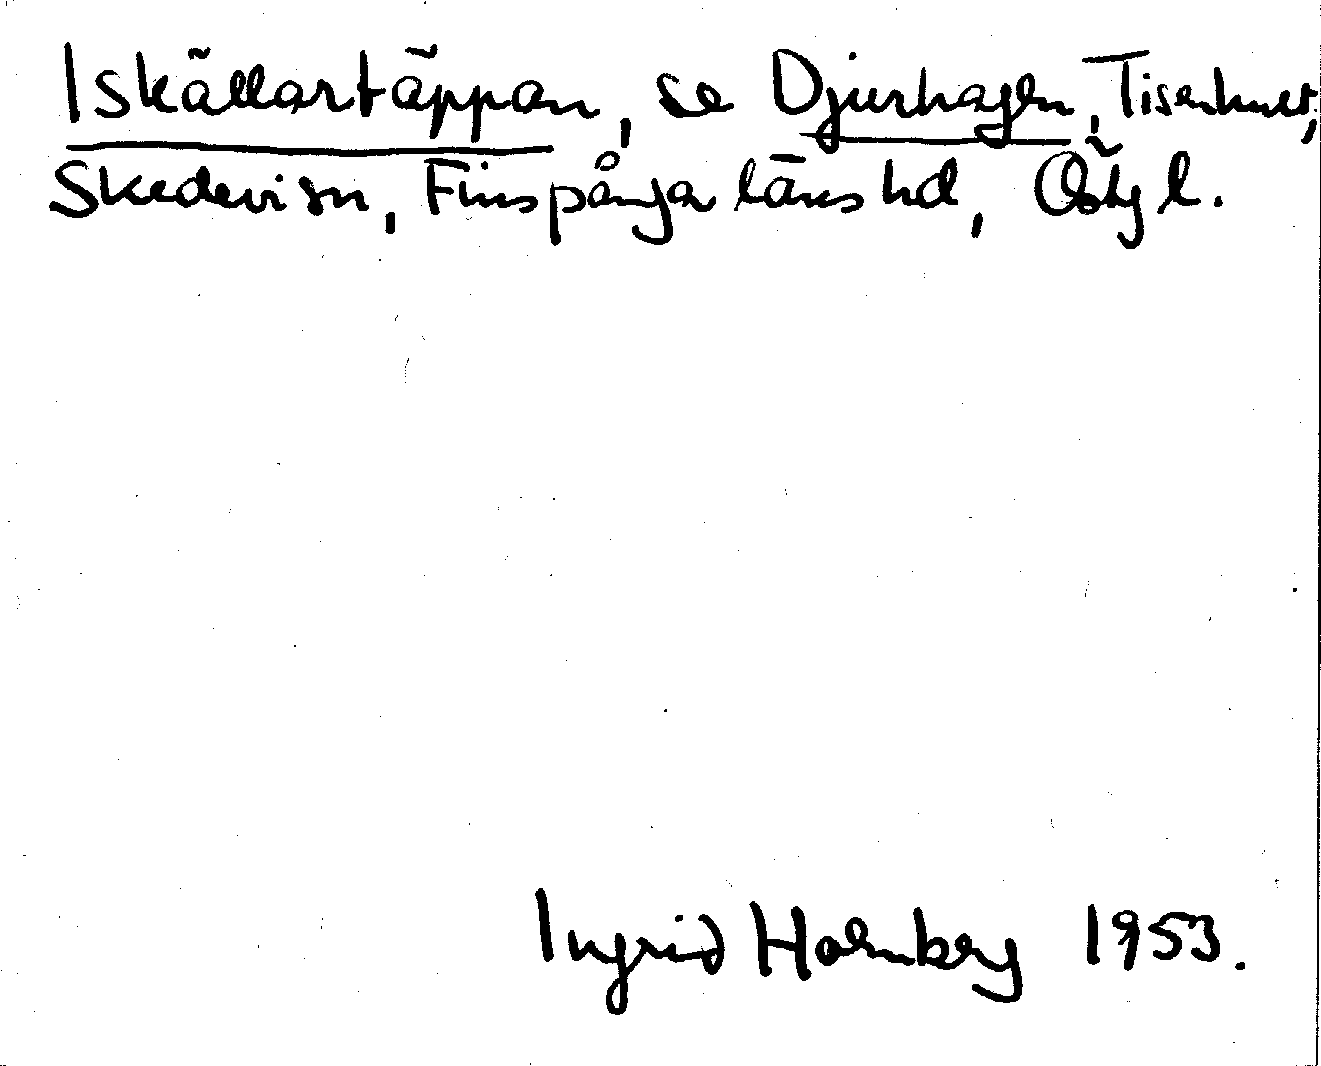 Iskällartäppan, se Djurhagen, Tisenhult,
Skedevi sn, Finspånga läns hd, Östg l.
Ingrid Holmberg 1953.